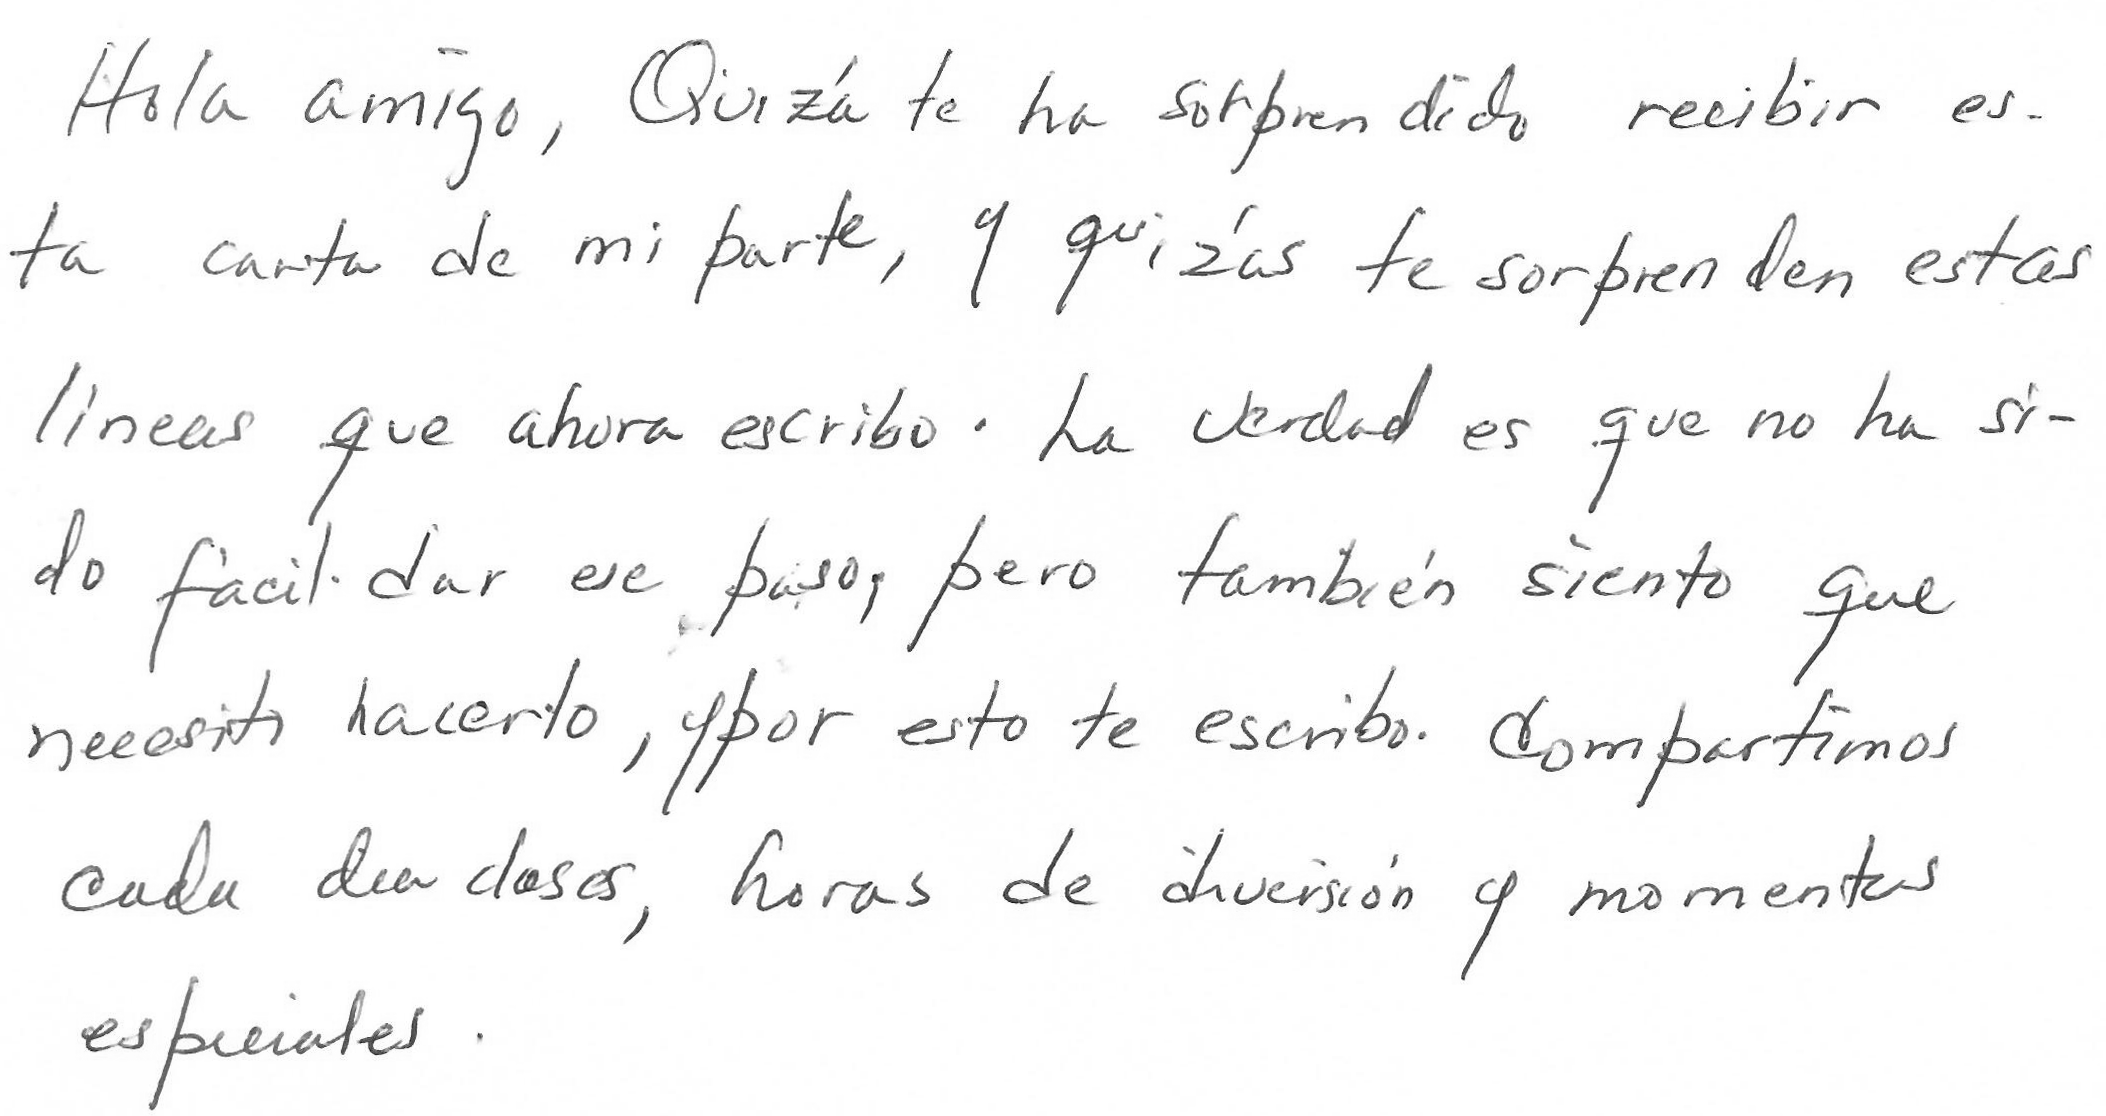 Hola amigo, Quizá te ha sorprendido recibir es-
ta carta de mi parte, y quizás te sorprenden estas
líneas que ahora escribo. La verdad es que no ha si-
do fácil dar ese paso, pero también siento que
necesito hacerlo, y por esto te escribo. Compartimos
cada dia clases, horas de diversión y momentos
especiales.